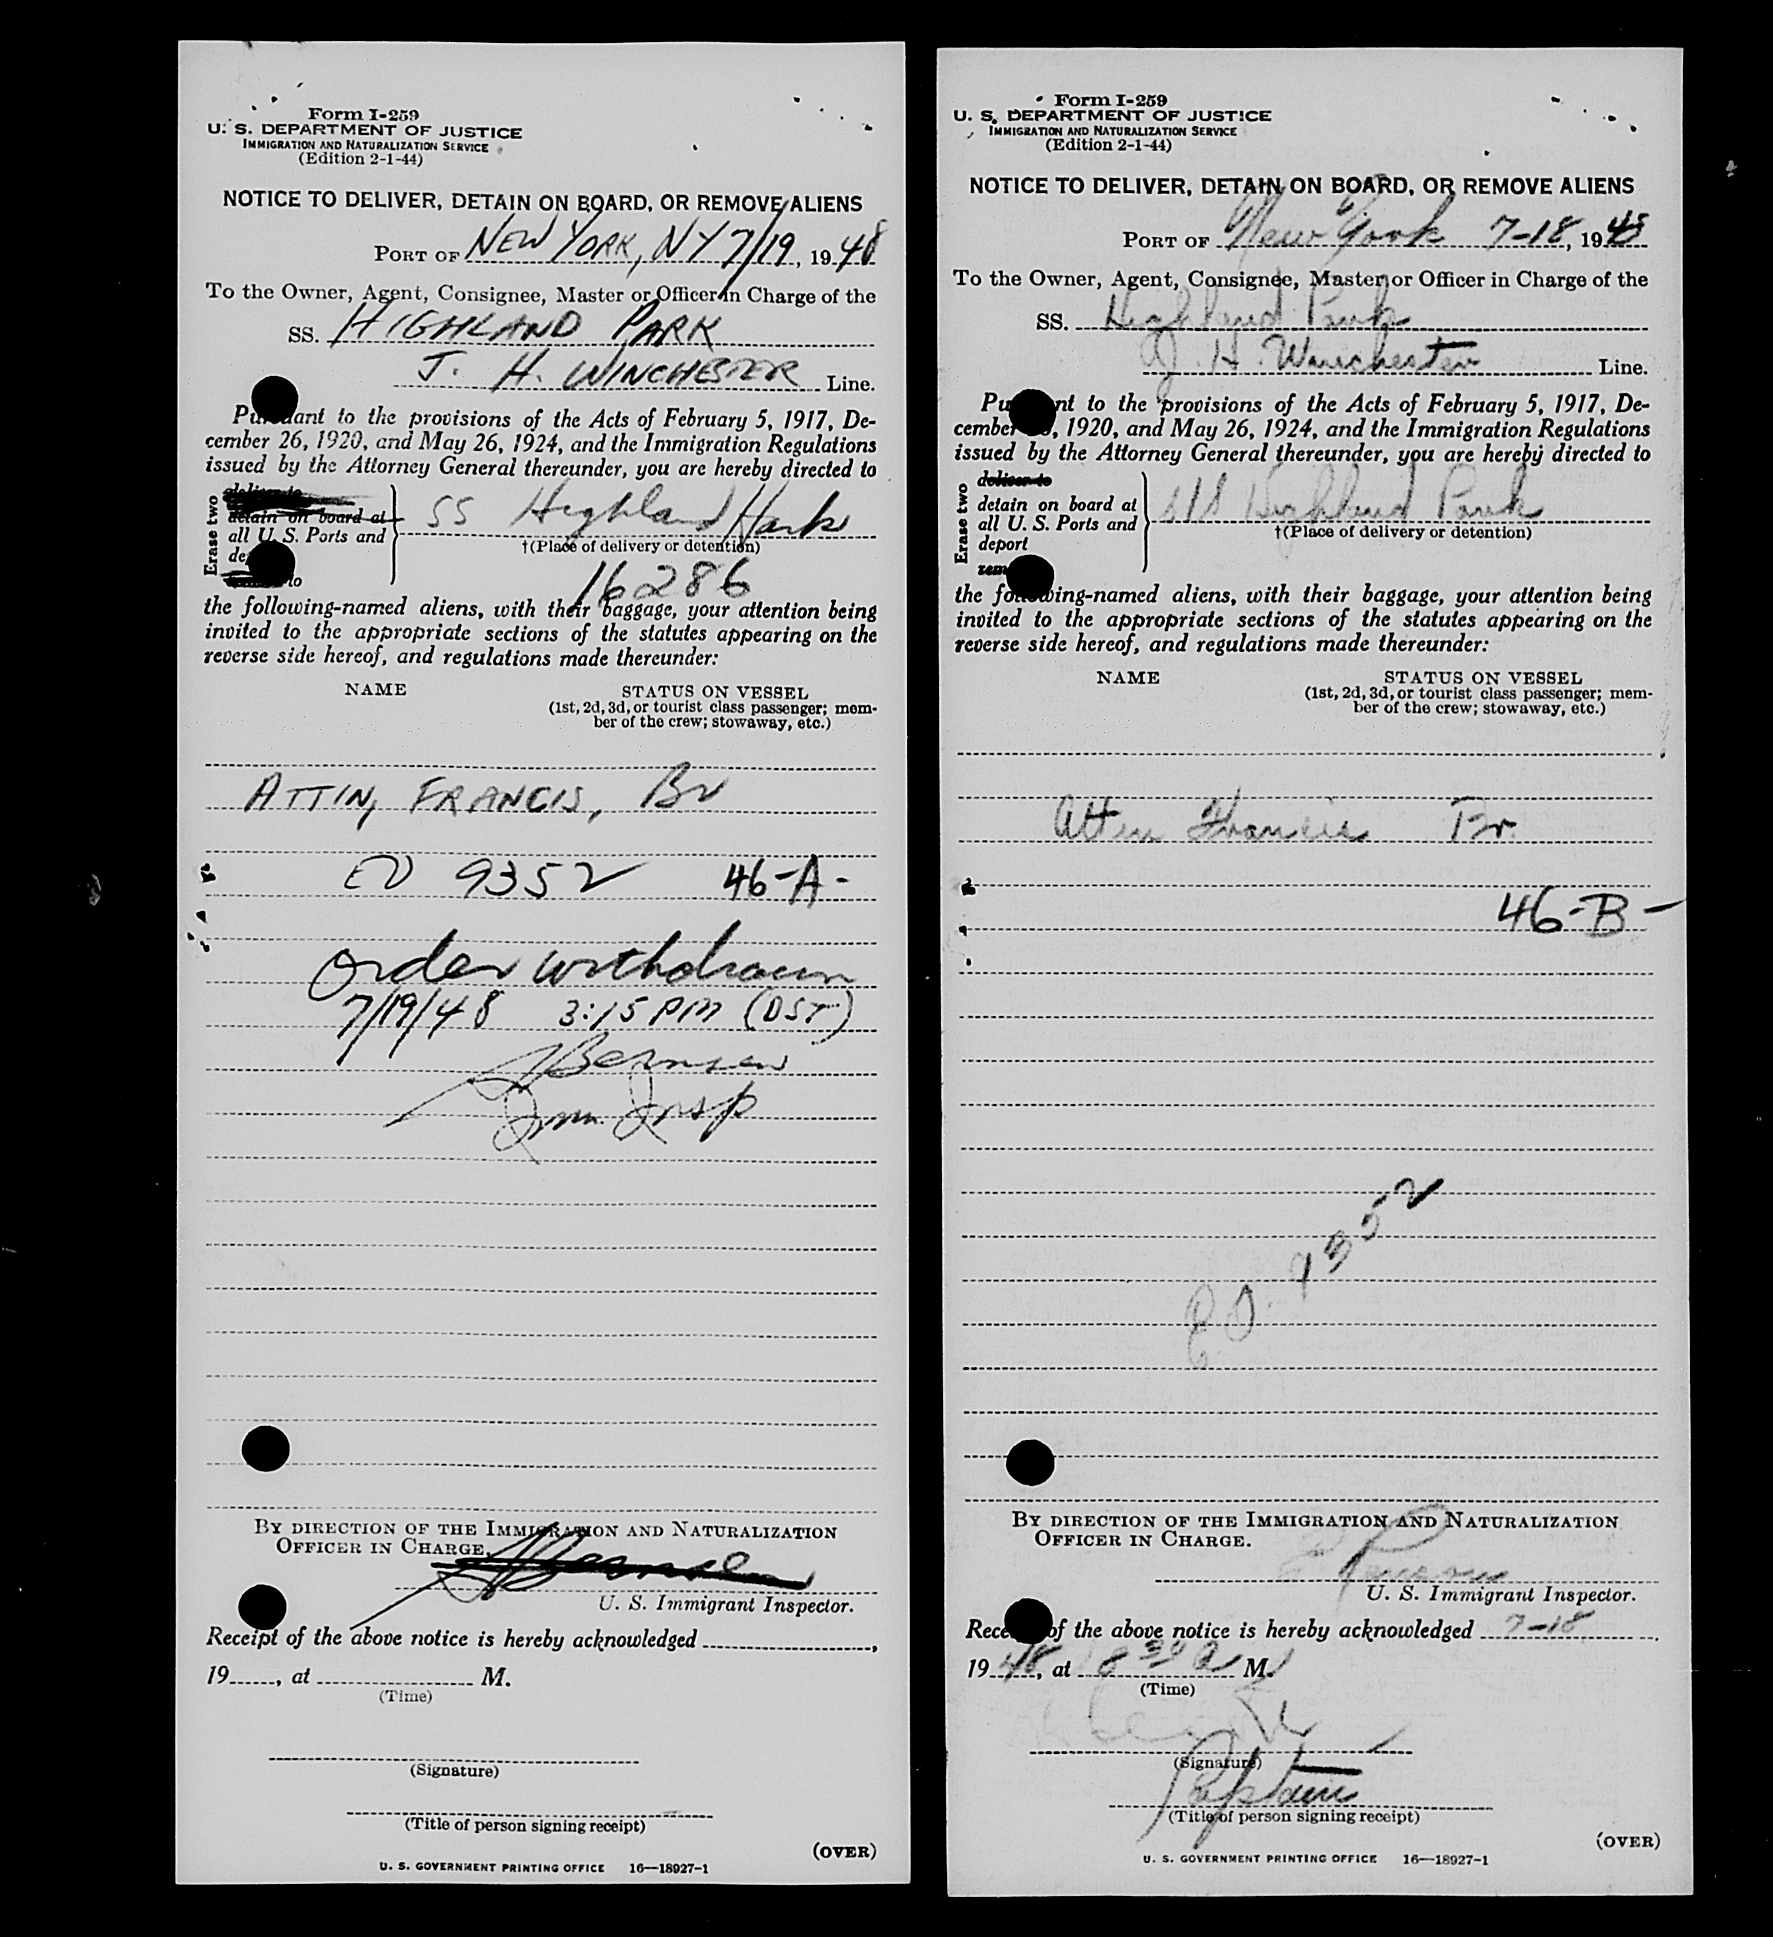 Form I-259
U. S. DEPARTMENT OF JUSTICE
IMMIGRATION AND NATURALIZATION SERVICE
(Edition 2-1-44)
NOTICE TO DELIVER, DETAIN ON BOARD, OR REMOVE ALIENS
PORT OF NEW YORK, NY 7/19, 1948
To the Owner, Agent, Consignee, Master or Officer in Charge of the
SS. HIGHLAND PARK
J. H. WINCHESTER Line.
Pursuant to the provisions of the Acts of February 5, 1917, De-
cember 26, 1920, and May 26, 1924, and the Immigration Regulations
issued by the Attorney General thereunder, you are hereby directed to
Erase two
deliver to
detain on board at
all U. S. Ports and
to
SS Highland Park
†(Place of delivery or detention)
16286
the following-named aliens, with their baggage, your attention being
invited to the appropriate sections of the statutes appearing on the
reverse side hereof, and regulations made thereunder:
NAME STATUS ON VESSEL
(1st, 2d, 3d, or tourist class passenger; mem-
ber of the crew; stowaway, etc.)
ATTIN, FRANCIS, Br
ED 9352 46-A-
Order withdrawn
7/19/48 3:15 PM (DST)
Imm. Insp
BY DIRECTION OF THE IMMIGRATION AND NATURALIZATION
OFFICER IN CHARGE.
U. S. Immigrant Inspector.
Receipt of the above notice is hereby acknowledged ,
19 , at M.
(Time)
(Signature)
(Title of person signing receipt)
(OVER)
U. S. GOVERNMENT PRINTING OFFICE 16—18927-1
Form I-259
U. S. DEPARTMENT OF JUSTICE
IMMIGRATION AND NATURALIZATION SERVICE
(Edition 2-1-44)
NOTICE TO DELIVER, DETAIN ON BOARD, OR REMOVE ALIENS
PORT OF New York 7-18, 1948
To the Owner, Agent, Consignee, Master or Officer in Charge of the
SS. Highland Park
J. H. Winchester Line.
Pursuant to the provisions of the Acts of February 5, 1917, De-
cember , 1920, and May 26, 1924, and the Immigration Regulations
issued by the Attorney General thereunder, you are hereby directed to
Erase two
deliver to
detain on board at
all U. S. Ports and
deport
S/S Highland Park
†(Place of delivery or detention)
the following-named aliens, with their baggage, your attention being
invited to the appropriate sections of the statutes appearing on the
reverse side hereof, and regulations made thereunder:
NAME STATUS ON VESSEL
(1st, 2d, 3d, or tourist class passenger; mem-
ber of the crew; stowaway, etc.)
Francis Br.
46-B-
E.D. 9352
BY DIRECTION OF THE IMMIGRATION AND NATURALIZATION
OFFICER IN CHARGE.
U. S. Immigrant Inspector.
Receipt of the above notice is hereby acknowledged 7-18,
1948, at 8 30 A M.
(Time)
(Signature)
Captain
(Title of person signing receipt)
(OVER)
U. S. GOVERNMENT PRINTING OFFICE 16—18927-1